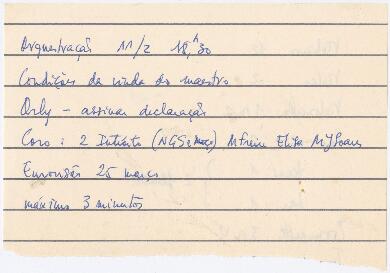 Orquestração 11/2 18,h30
Condições da vinda do maestro
Orly - assinar declaração
Coro: 2 Intróito (NGS e março) MFreire Elisa MJSoares
Eurovisão 25 março
máximo 3 minutos